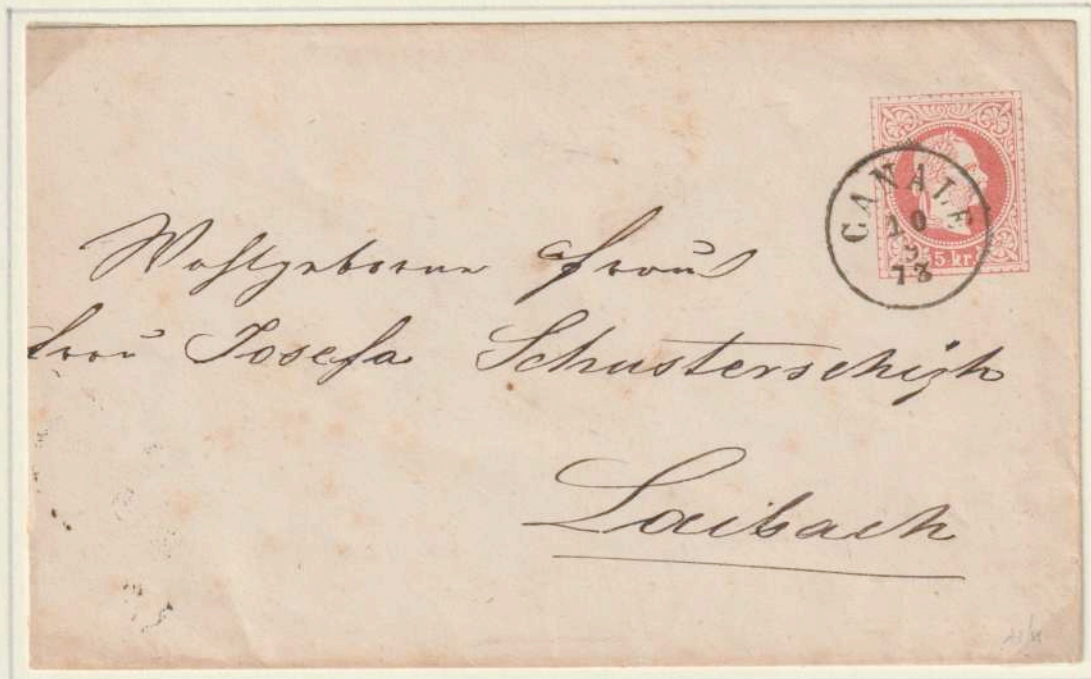 CANALE
10
3
73
5 kr.
Wohlgeborne Frau
Frau Josefa Schusterschizh
Laibach